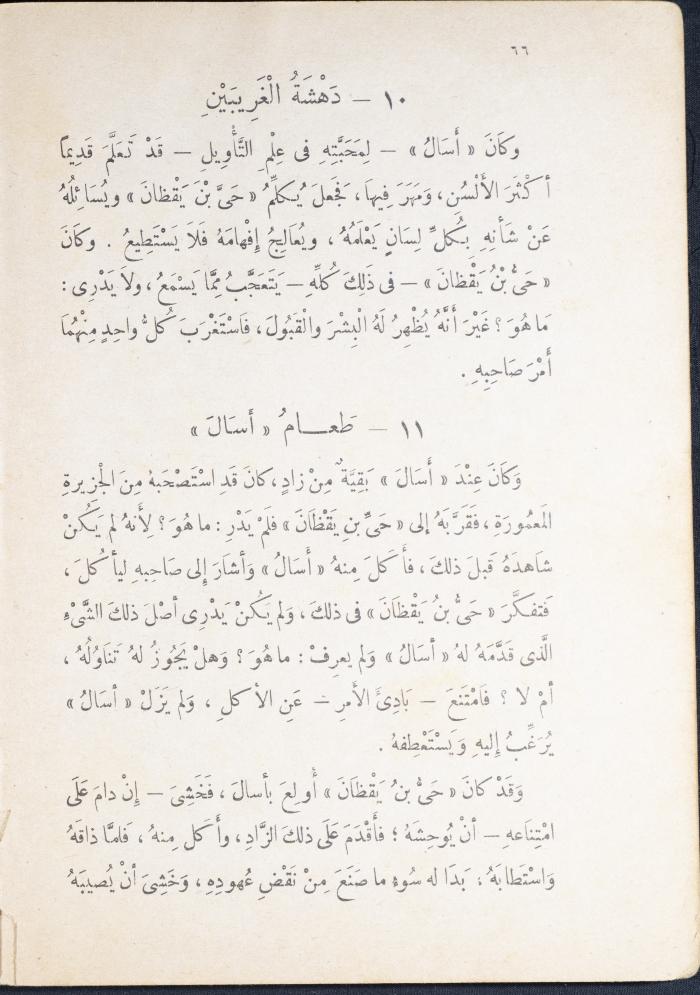 ٦٦
١٠ – دَهْشَةُ الْغَرِيبَيْنِ
وكَانَ « أَسَالُ » – لِمَحَبَّتِهِ فى عِلْمِ التَّأْوِيلِ – قَدْ تَعَلَّمَ قَدِيمًا
أكْثَرَ الأَلْسُنِ، وَمَهَرَ فِيهَا، فَجَعَلَ يُكلِّمُ « حَىَّ بْنَ يَقْظانَ » ويُسَائِلُهُ
عَنْ شَأنِهِ بِكُلِّ لِسَانٍ يَعْلَمُهُ، ويُعَالِجُ إِفْهَامَهُ فَلاَ يَسْتَطِيعُ . وكَانَ
« حَىُّ بْنُ يَقْظَانَ » – فى ذَلِكَ كُلِّهِ – يَتَعَجَّبُ مِمَّا يَسْمَعُ، ولاَ يَدْرِى :
مَا هُوَ؟ غَيْرَ أَنَّهُ يُظْهِرُ لَهُ الْبِشْرَ والْقَبُولَ، فَاسْتَغْرَبَ كُلُّ واحِدٍ مِنْهُمَا
أَمْرَ صَاحِبِهِ .
١١ – طَعـــامُ « أَسَالَ »
وَكَانَ عِنْدَ « أَسَالَ » بَقِيَّةٌ مِنْ زادٍ، كانَ قَدِ اسْتَصْحَبَهُ مِنَ الْجزِيرةِ
المَعمُورَةِ، فَقَرَّبَهُ إلى « حَىِّ بنِ يَقْظَانَ » فلَمْ يَدْرِ : ما هُوَ؟ لِأَنهُ لم يَكُنْ
شاهدَهُ قبلَ ذلكَ، فأكَلَ مِنهُ « أَسَالُ » وَأشارَ إلى صَاحبِهِ ليأكُلَ،
فَتفكَّرَ « حَىُّ بنُ يَقْظَانَ » فى ذلكَ، وَلم يكُنْ يَدْرِى أصْلَ ذلكَ الشَّىْءِ
الَّذى قَدَّمَهُ لهُ « أسَالُ » وَلم يعرِفْ : ما هُوَ؟ وَهلْ يَجُوزُ لهُ تَناوُلُهُ،
أمْ لا؟ فَامْتَنعَ – بَادِئَ الأَمرِ – عَنِ الأكلِ، وَلم يَزَلْ « أسَالُ »
يُرَغِّبُ إليهِ وَيَسْتَعْطِفهُ .
وَقَدْ كانَ « حَىُّ بنُ يَقْظَانَ » أُولِعَ بأسالَ، فَخَشِىَ – إِنْ دامَ عَلَى
امْتِناعهِ – أنْ يُوحِشَهُ؛ فأَقْدَمَ عَلَى ذلكَ الزَّادِ، وأكَلَ مِنهُ، فَلمَّا ذاقَهُ
وَاسْتَطابَهُ، بَدَا له سُوءُ ما صَنَعَ مِنْ نَقْضِ عُهودِهِ، وَخَشِىَ أنْ يُصِيبَهُ